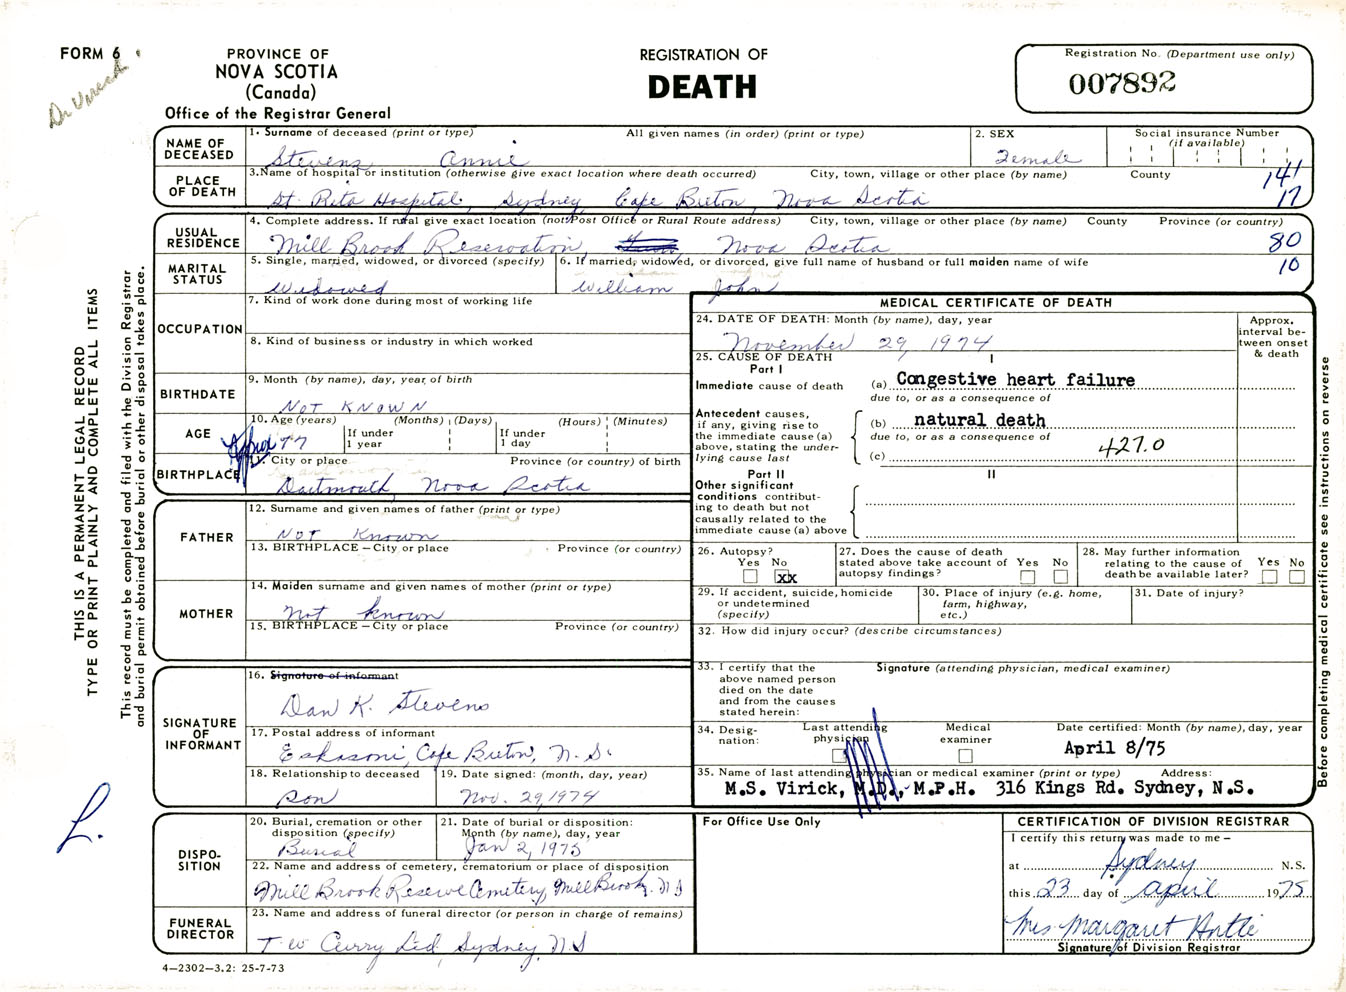 FORM 6
PROVINCE OF
NOVA SCOTIA
(Canada)
Office of the Registrar General
REGISTRATION OF
DEATH
Registration No. (Department use only)
007892
NAME OF DECEASED
1. Surname of deceased (print or type) All given names (in order) (print or type)
Stevens Annie
2. SEX
Female
Social insurance Number
(if available)
PLACE OF DEATH
3. Name of hospital or institution (otherwise give exact location where death occurred) City, town, village or other place (by name) County
St. Rita Hospital, Sydney Cape Breton, Nova Scotia
141
17
USUAL RESIDENCE
4. Complete address. If rural give exact location (not Post Office or Rural Route address) City, town, village or other place (by name) County Province (or country)
Mill Brook Reservation, Nova Scotia
80
10
MARITAL STATUS
5. Single, married, widowed, or divorced (specify)
Widowed
6. If married, widowed, or divorced, give full name of husband or full maiden name of wife
William John
OCCUPATION
7. Kind of work done during most of working life
8. Kind of business or industry in which worked
BIRTHDATE
9. Month (by name), day, year of birth
NOT KNOWN
AGE
10. Age (years) (Months) (Days) (Hours) (Minutes)
Approx 77
If under 1 year
If under 1 day
BIRTHPLACE
11. City or place Province (or country) of birth
Dartmouth, Nova Scotia
FATHER
12. Surname and given names of father (print or type)
Not Known
13. BIRTHPLACE – City or place Province (or country)
MOTHER
14. Maiden surname and given names of mother (print or type)
Not known
15. BIRTHPLACE – City or place Province (or country)
SIGNATURE OF INFORMANT
16. Signature of informant
Dan K. Stevens
17. Postal address of informant
Eskasoni, Cape Breton, N.S.
18. Relationship to deceased
Son
19. Date signed: (month, day, year)
Nov. 29, 1974
DISPO-
SITION
20. Burial, cremation or other disposition (specify)
Burial
21. Date of burial or disposition: Month (by name), day, year
Jan 2, 1975
22. Name and address of cemetery, crematorium or place of disposition
Mill Brook Reserve Cemetery, Mill Brook, N S
FUNERAL DIRECTOR
23. Name and address of funeral director (or person in charge of remains)
T W Curry Ltd, Sydney, N S
4–2302–3.2: 25-7-73
MEDICAL CERTIFICATE OF DEATH
24. DATE OF DEATH: Month (by name), day, year
November 29, 1974
Approx. interval be-
tween onset & death
25. CAUSE OF DEATH
Part I
I
Immediate cause of death
(a) Congestive heart failure
due to, or as a consequence of
Antecedent causes,
if any, giving rise to
the immediate cause (a)
above, stating the under-
lying cause last
(b) natural death
due to, or as a consequence of
427.0
(c)
Part II
II
Other significant
conditions contribut-
ing to death but not
causally related to the
immediate cause (a) above
26. Autopsy?
Yes No
xx
27. Does the cause of death stated above take account of autopsy findings?
Yes No
28. May further information relating to the cause of death be available later?
Yes No
29. If accident, suicide, homicide or undetermined (specify)
30. Place of injury (e.g. home, farm, highway, etc.)
31. Date of injury?
32. How did injury occur? (describe circumstances)
33. I certify that the
above named person
died on the date
and from the causes
stated herein:
Signature (attending physician, medical examiner)
34. Desig-
nation:
Last attending physician
Medical examiner
Date certified: Month (by name), day, year
April 8/75
35. Name of last attending physician or medical examiner (print or type) Address:
M.S. Virick, M.D., M.P.H. 316 Kings Rd. Sydney, N.S.
For Office Use Only
CERTIFICATION OF DIVISION REGISTRAR
I certify this return was made to me –
at Sydney N.S.
this 23 day of April 1975
Mrs. Margaret
Signature of Division Registrar
THIS IS A PERMANENT LEGAL RECORD
TYPE OR PRINT PLAINLY AND COMPLETE ALL ITEMS
This record must be completed and filed with the Division Registrar
and burial permit obtained before burial or other disposal takes place.
Before completing medical certificate see instructions on reverse
Dr Vireck
L.